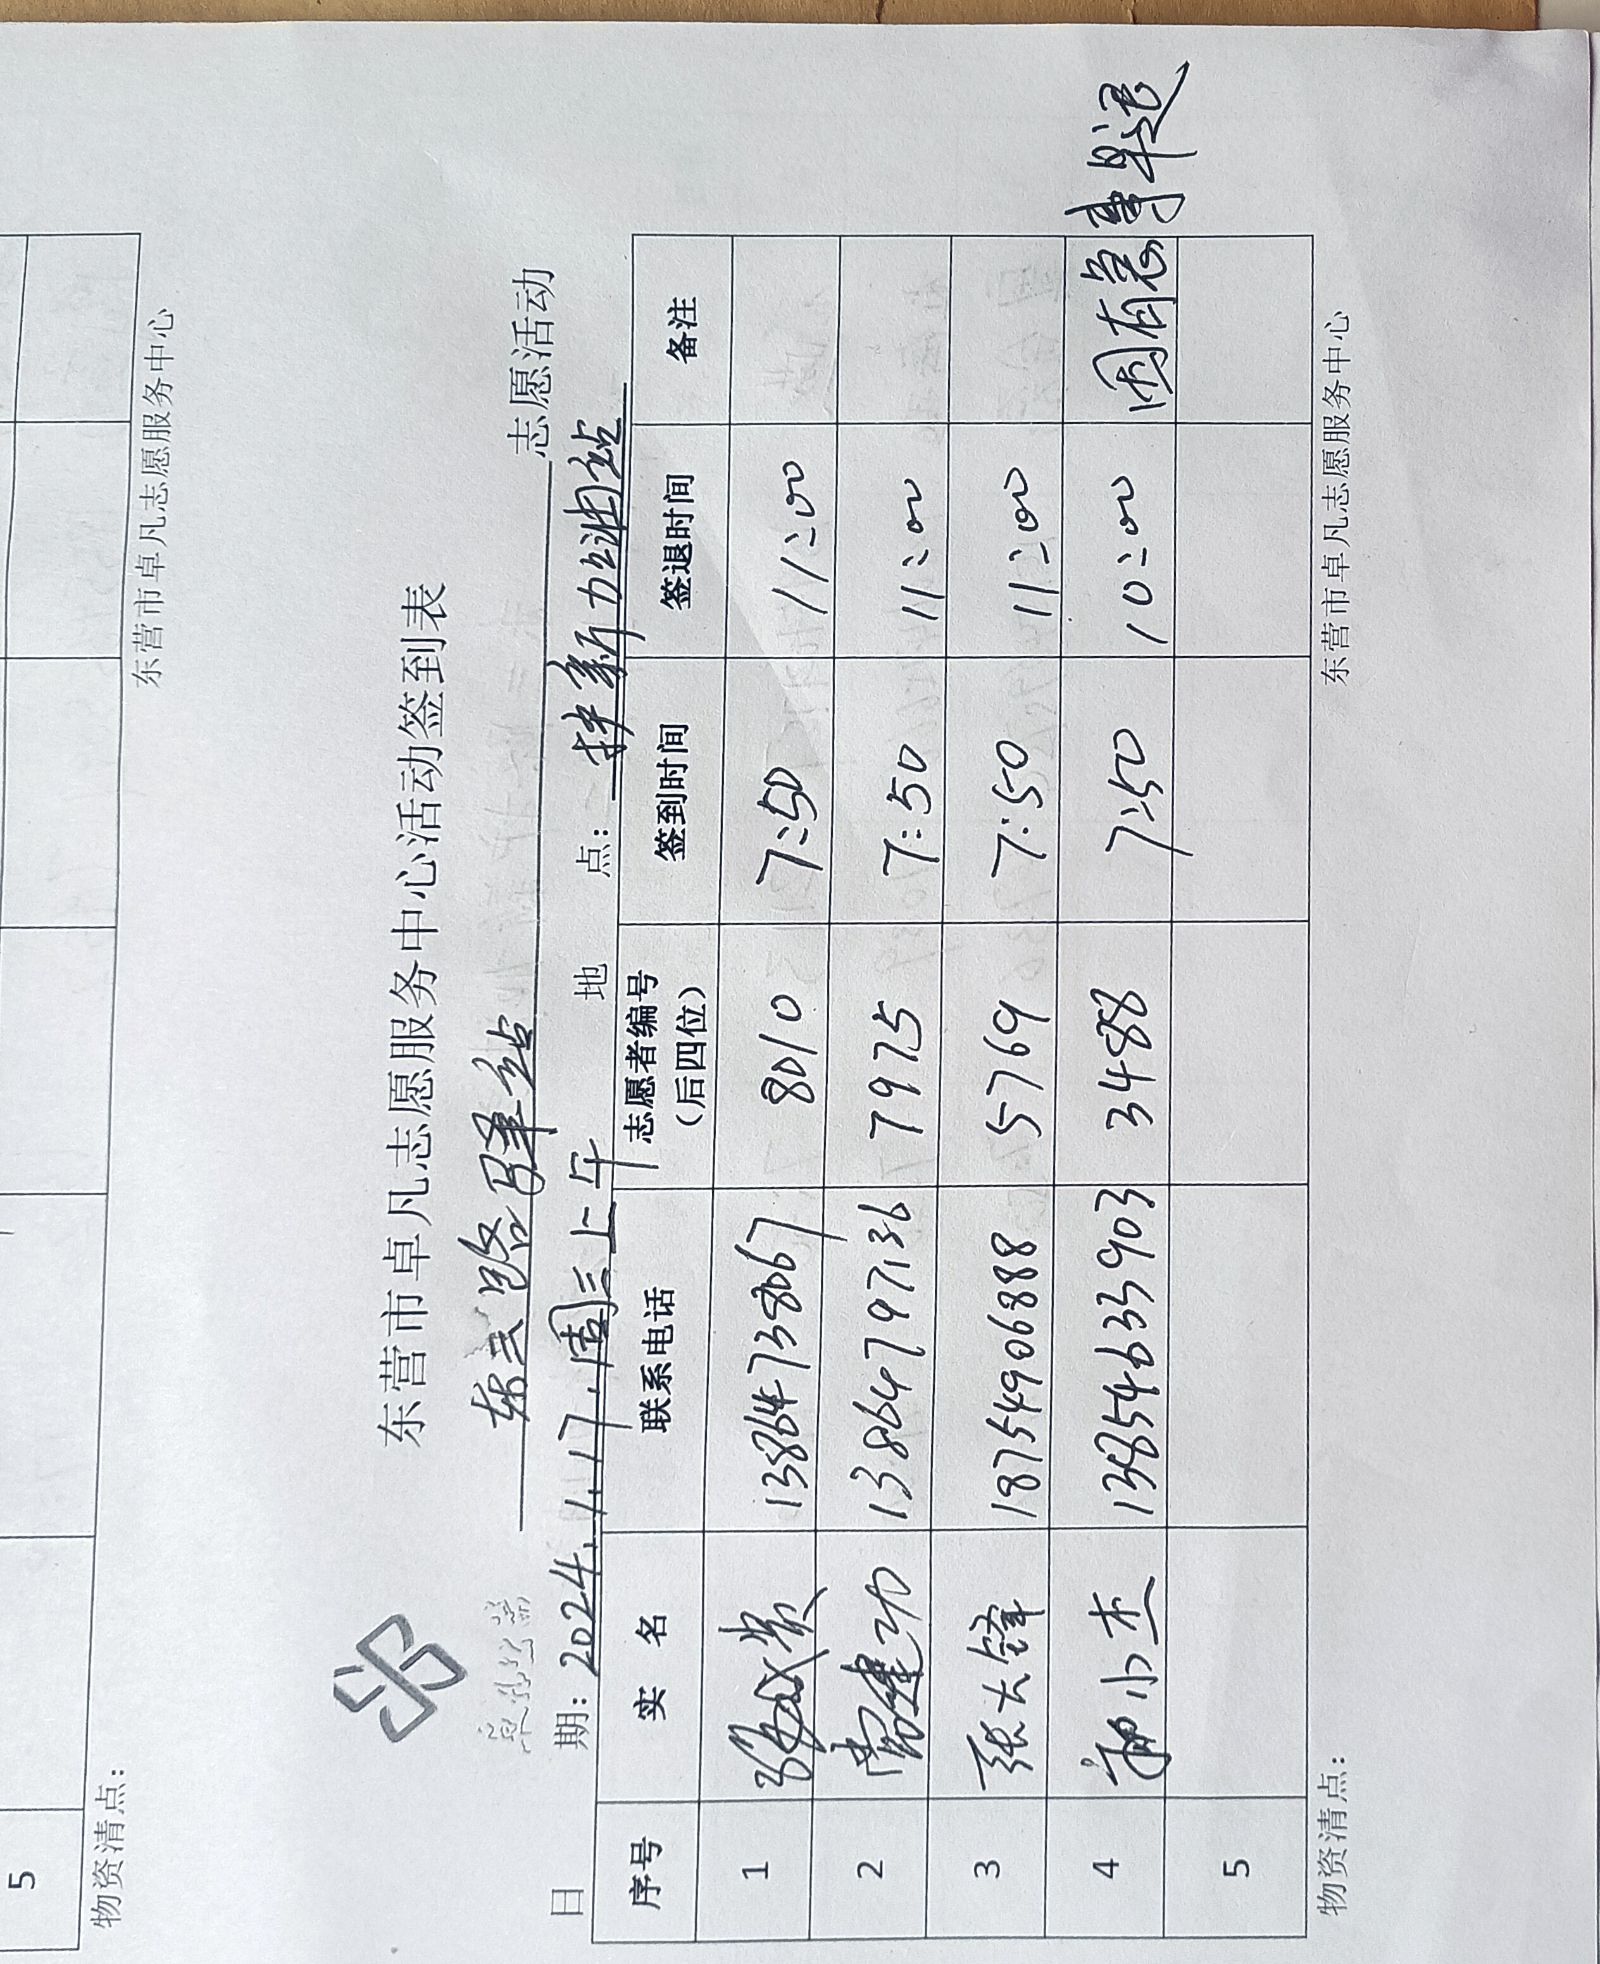 5
物资清点:
东营市卓凡志愿服务中心
东营市卓凡志愿服务中心活动签到表
东二路驿站 志愿活动
日 期: 2024.1.17.周三上午 地 点: 新力加油站
序号 实 名 联系电话 志愿者编号(后四位) 签到时间 签退时间 备注
1 13864738067 8010 7:50 11:00
2 常建功 13864797136 7975 7:50 11:00
3 张大锋 18754906888 5769 7:50 11:00
4 小杰 13854633903 3488 7:50 10:00 因有急事早退
5
物资清点:
东营市卓凡志愿服务中心